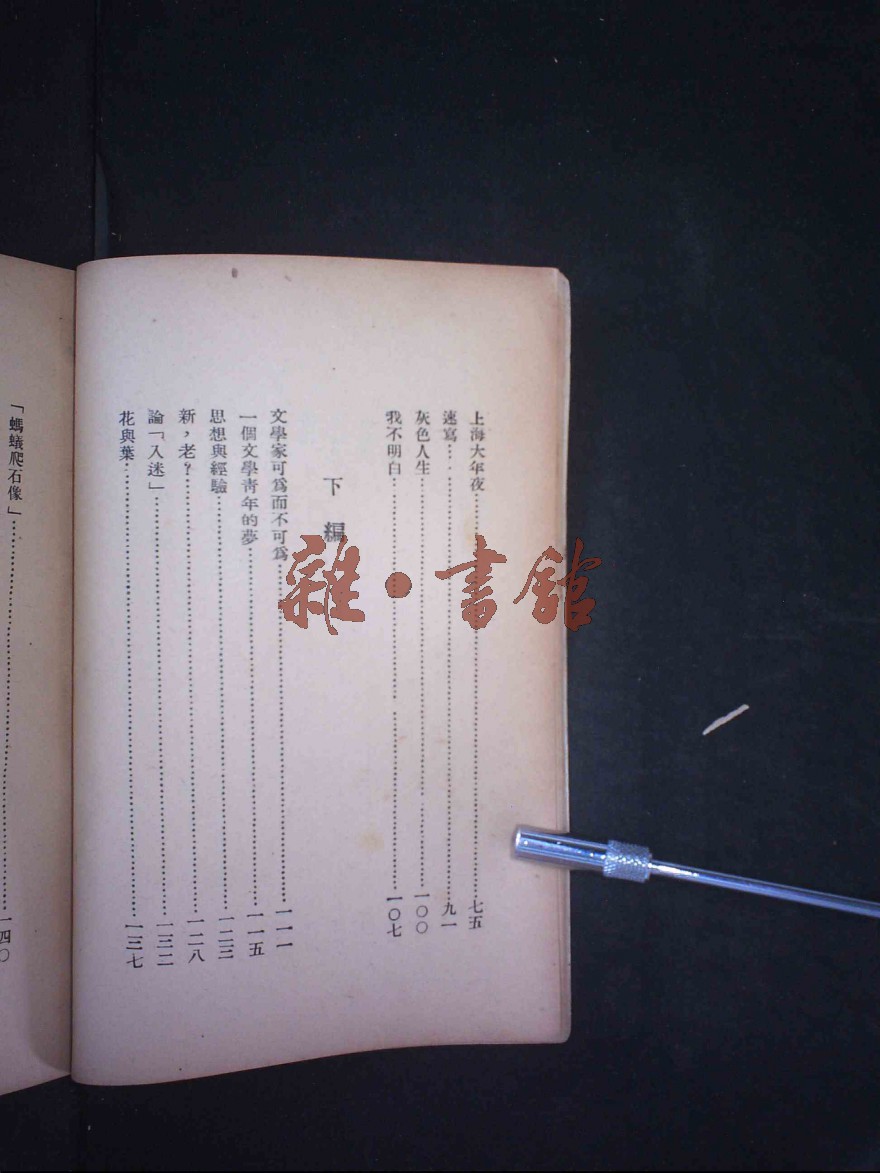 上海大年夜……七五
速寫……九一
灰色人生……一〇〇
我不明白……一〇七
下編
文學家可爲而不可爲……一一一
一個文學靑年的夢……一一五
思想與經驗……一二三
新，老？……一二八
論「入迷」……一三二
花與葉……一三七
「螞蟻爬石像」……一四〇
雜·書館